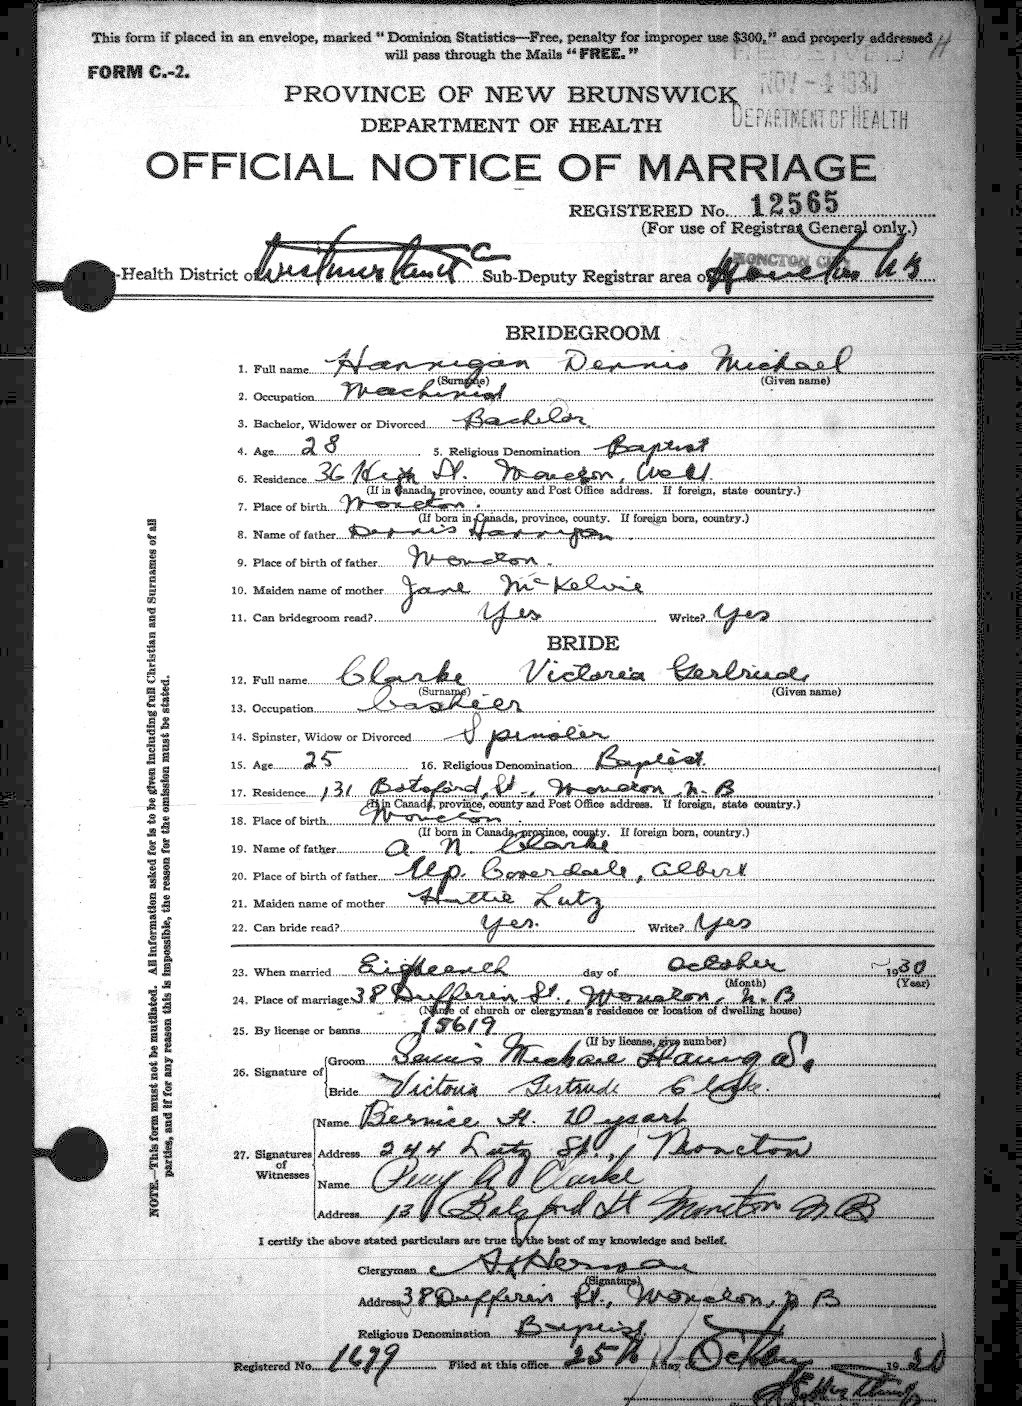 This form if placed in an envelope, marked "Dominion Statistics—Free, penalty for improper use $300," and properly addressed
will pass through the Mails "FREE."
FORM C.-2.
NOV - 4 1930
DEPARTMENT OF HEALTH
PROVINCE OF NEW BRUNSWICK
DEPARTMENT OF HEALTH
OFFICIAL NOTICE OF MARRIAGE
REGISTERED No. 12565
(For use of Registrar General only.)
MONCTON CITY
-Health District of Westmorland Co Sub-Deputy Registrar area of Moncton N B
BRIDEGROOM
1. Full name Hannigan Dennis Michael
(Surname) (Given name)
2. Occupation Machinist
3. Bachelor, Widower or Divorced Bachelor
4. Age 28 5. Religious Denomination Baptist
6. Residence 36 High St. Moncton, West.
(If in Canada, province, county and Post Office address. If foreign, state country.)
7. Place of birth Moncton.
(If born in Canada, province, county. If foreign born, country.)
8. Name of father Dennis Hannigan
9. Place of birth of father Moncton.
10. Maiden name of mother Jane McKelvie
11. Can bridegroom read? Yes Write? Yes
BRIDE
12. Full name Clarke Victoria Gertrude
(Surname) (Given name)
13. Occupation Cashier
14. Spinster, Widow or Divorced Spinster
15. Age 25 16. Religious Denomination Baptist.
17. Residence 131 Botsford St., Moncton N.B
(If in Canada, province, county and Post Office address. If foreign, state country.)
18. Place of birth Moncton.
(If born in Canada, province, county. If foreign born, country.)
19. Name of father A. N. Clarke
20. Place of birth of father Up. Coverdale, Albert
21. Maiden name of mother Hattie Lutz
22. Can bride read? Yes. Write? Yes
23. When married Eighteenth day of October 1930
(Month) (Year)
24. Place of marriage 38 Dufferin St., Moncton, N.B
(Name of church or clergyman's residence or location of dwelling house)
25. By license or banns 15619
(If by license, give number)
26. Signature of
Groom Dennis Michael
Bride Victoria Gertrude Clarke.
27. Signatures of Witnesses
Name Bernice H. Dysart
Address 244 Lutz St., Moncton
Name Percy A Clarke
Address 131 Botsford St Moncton N B
I certify the above stated particulars are true to the best of my knowledge and belief.
Clergyman Herman
(Signature)
Address 38 Dufferin St., Moncton, N B
Religious Denomination Baptist
Registered No. 1679 Filed at this office 25th day of October 1930
NOTE.—This form must not be mutilated. All information asked for is to be given including full Christian and Surnames of all
parties, and if for any reason this is impossible, the reason for the omission must be stated.